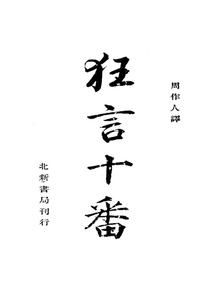 周作人譯
狂言十番
北新書局刊行